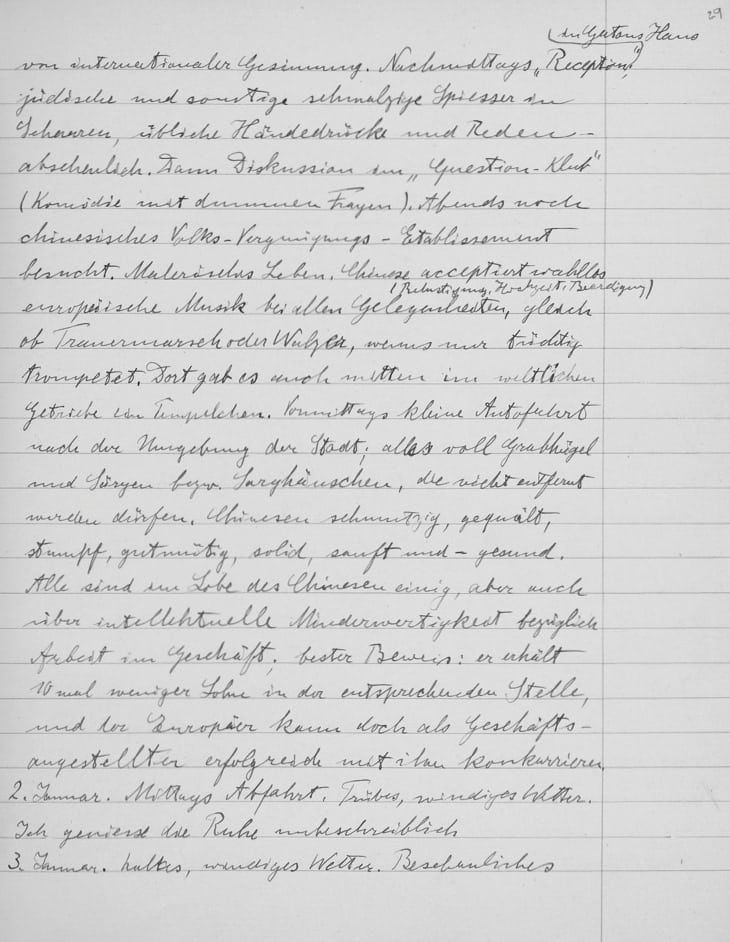 29
(in Gattons Haus)
von internationaler Gesinnung. Nachmittags „Reception“,
jüdische und sonstige schmalzige Spiesser in
Scharen, übliche Händedrücke und Reden –
abscheulich. Dann Diskussion im „Question-Klub“
(Komödie mit dummen Fragen). Abends noch
chinesisches Volks-Vergnügungs-Etablissement
besucht. Malerisches Leben. Chinese acceptiert wahllos
(Belustigung, Hochzeit, Beerdigung)
europäische Musik bei allen Gelegenheiten, gleich
ob Trauermarsch oder Walzer, wenns nur tüchtig
trompetet. Dort gab es auch mitten im weltlichen
Getriebe ein Tempelchen. Vormittags kleine Autofahrt
nach der Umgebung der Stadt; alles voll Grabhügel
und Särgen bezw. Sarghäuschen, die nicht entfernt
werden dürfen. Chinesen schmutzig, gequält,
stumpf, gutmütig, solid, sanft und – gesund.
Alle sind im Lobe des Chinesen einig, aber auch
über intellektuelle Minderwertigkeit bezüglich
Arbeit im Geschäft; bester Beweis: er erhält
10 mal weniger Lohn in der entsprechenden Stelle,
und der Europäer kann doch als Geschäfts-
angestellter erfolgreich mit ihm konkurrieren.
2. Januar. Mittags Abfahrt. Trübes, windiges Wetter.
Ich geniesse die Ruhe unbeschreiblich
3. Januar. kaltes, windiges Wetter. Beschauliches